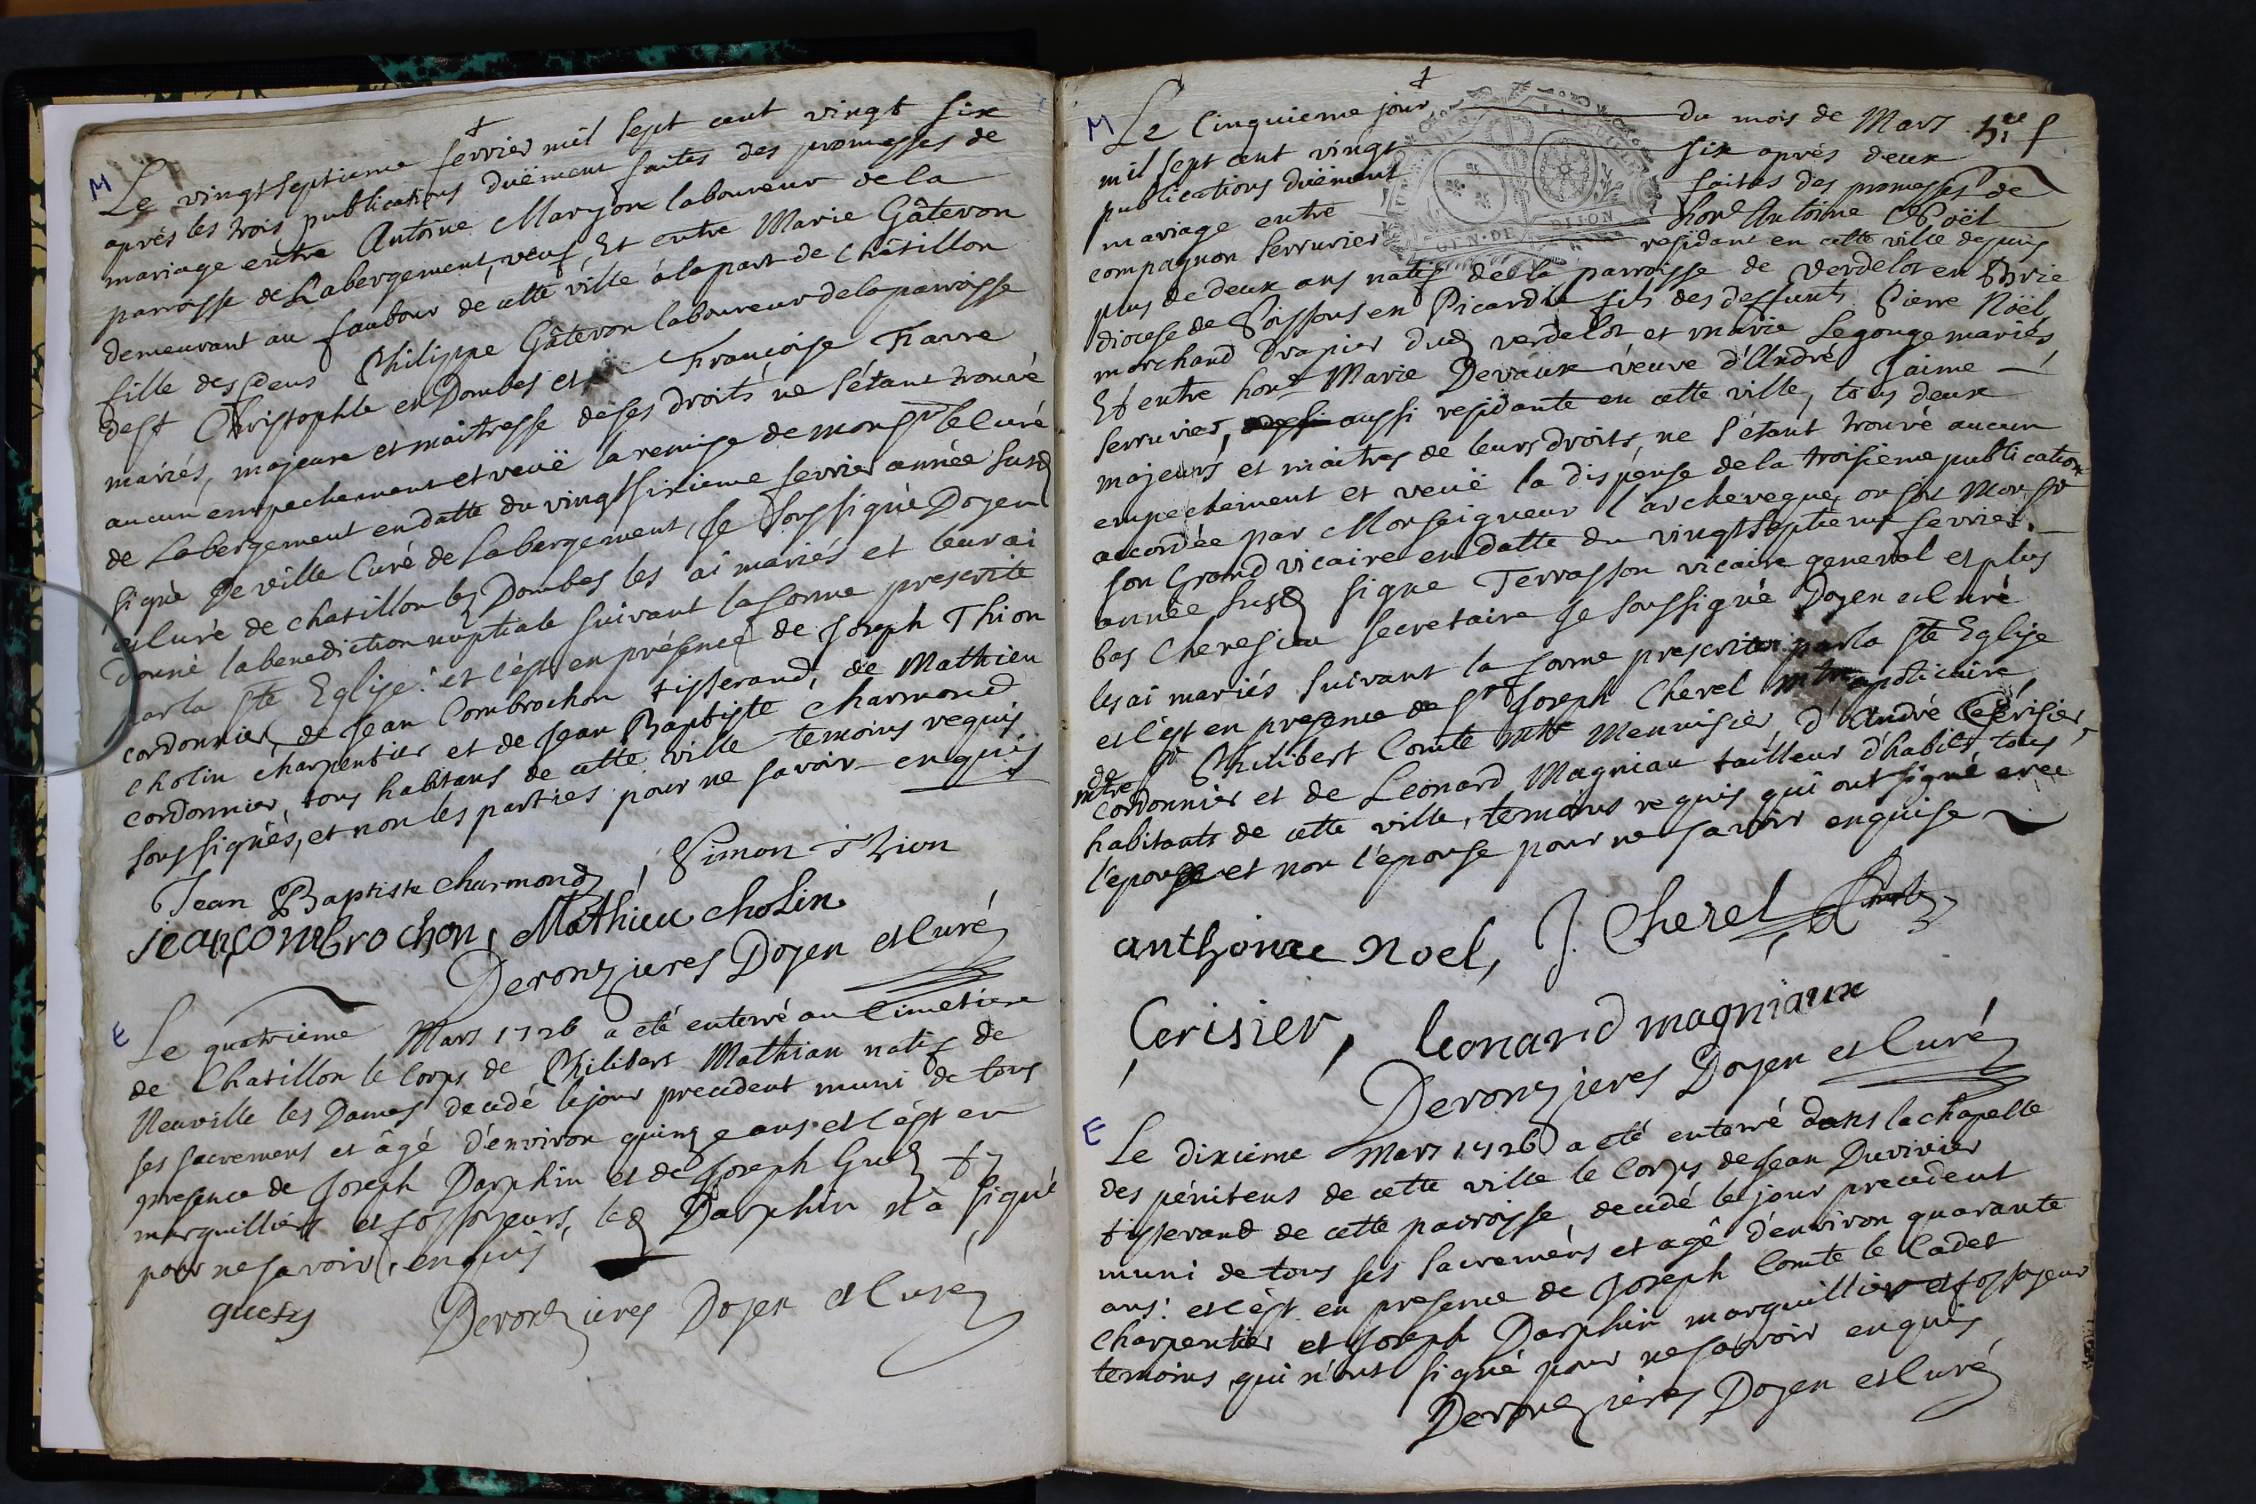 M
Le vingtseptieme fevrier mil sept cent vingt six
après les trois publications duëment faites des promesses de
mariage entre Antoine Maryon laboureur de la
parroisse de Labergement, veuf, Et entre Marie Gâteron
demeurant au faubour de cette ville à la part de Châtillon
fille des deus Philippe Gâteron laboureur de la parroisse
de st Christophle en Dombes et Françoise Fiarre
mariés, majeure et maitresse de ses droits ne s'étant trouvé
aucun empechement et veuë la remise de monsr le Curé
de Labergement en datte du vingtsixieme fevrier année susd
signé Deville Curé de Labergement, Je soussigné Doyen
et Curé de chatillon les Dombes les ai mariés et leur ai
donné la benediction nuptiale suivant la forme prescrite
par la ste Eglise. et c'est en présence de Joseph Thion
cordonnier, de Jean Combrochon tisserand, de Mathieu
Cholin charpentier et de Jean Baptiste Charmond
cordonnier, tous habitans de cette ville temoins requis
soussignés, et non les parties pour ne savoir enquis
Jean Baptiste Charmond, Simon Thion
jean combrochon, Mathieu cholin
Deronzieres Doyen et Curé
E
Le quatrieme Mars 1726 a eté enterré au Cimetiere
de Chatillon le Corps de Philibert Mathian natif de
Neuville les Dames decedé le jour precedent muni de tous
ses sacremens et âgé d'environ quinze ans et c'est en
presence de Joseph Darphin et de Joseph Gued
marguilliers et fossoyeurs, led Darphin n'a signé
pour ne savoir, enquis
Deronzieres Doyen et Curé
M
Le Cinquieme jour du mois de Mars
mil sept cent vingt six après deux
publications duëment faites des promesses de
mariage entre hone Antoine Noël
compagnon serrurier residant en cette ville depuis
plus de deux ans natif de la parroisse de Verdelot en Brie
diocese de Soissons en Picardie fils des deffunts Pierre Noël
marchand Drapier dud verdelot et marie Legouge mariés
Et entre hone Marie Devaux veuve d'André Jaime
serrurier, aussi residante en cette ville, tous deux
majeurs et maitres de leurs droits, ne s'étant trouvé aucun
empechement et veuë la dispense de la troisieme publication
accordée par Monseigneur l'archeveque, ou par Monsr
son Grand vicaire en datte du vingtseptieme fevrier
année susd signé Terrasson vicaire general et plus
bas Cheresieu secretaire Je soussigné Doyen et Curé
les ai mariés suivant la forme prescrite par la ste Eglise
et c'est en presence de Sr Joseph Cherel mtre apoticaire
de Sr Philibert Comte mtre Menuisier, d'André Cerisier
mtre cordonnier et de Leonard Magniau tailleur d'habits, tous
habitants de cette ville, temoins requis qui ont signé avec
l'epoux et non l'epouse pour ne savoir enquise
anthoine Noel, J. Cherel
Cerisier, leonard magniaux
Deronzieres Doyen et Curé
E
Le dixieme Mars 1726 a eté enterré dans la chapelle
des pénitens de cette ville le Corps de Jean Duvivier
tisserand de cette parroisse, decedé le jour precedent
muni de tous ses sacremens et agé d'environ quarante
ans. et c'est en presence de Joseph Comte le Cadet
Charpentier et Joseph Darphin marguillier et fossoyeur
temoins qui n'ont signé pour ne savoir enquis
Deronzieres Doyen et Curé